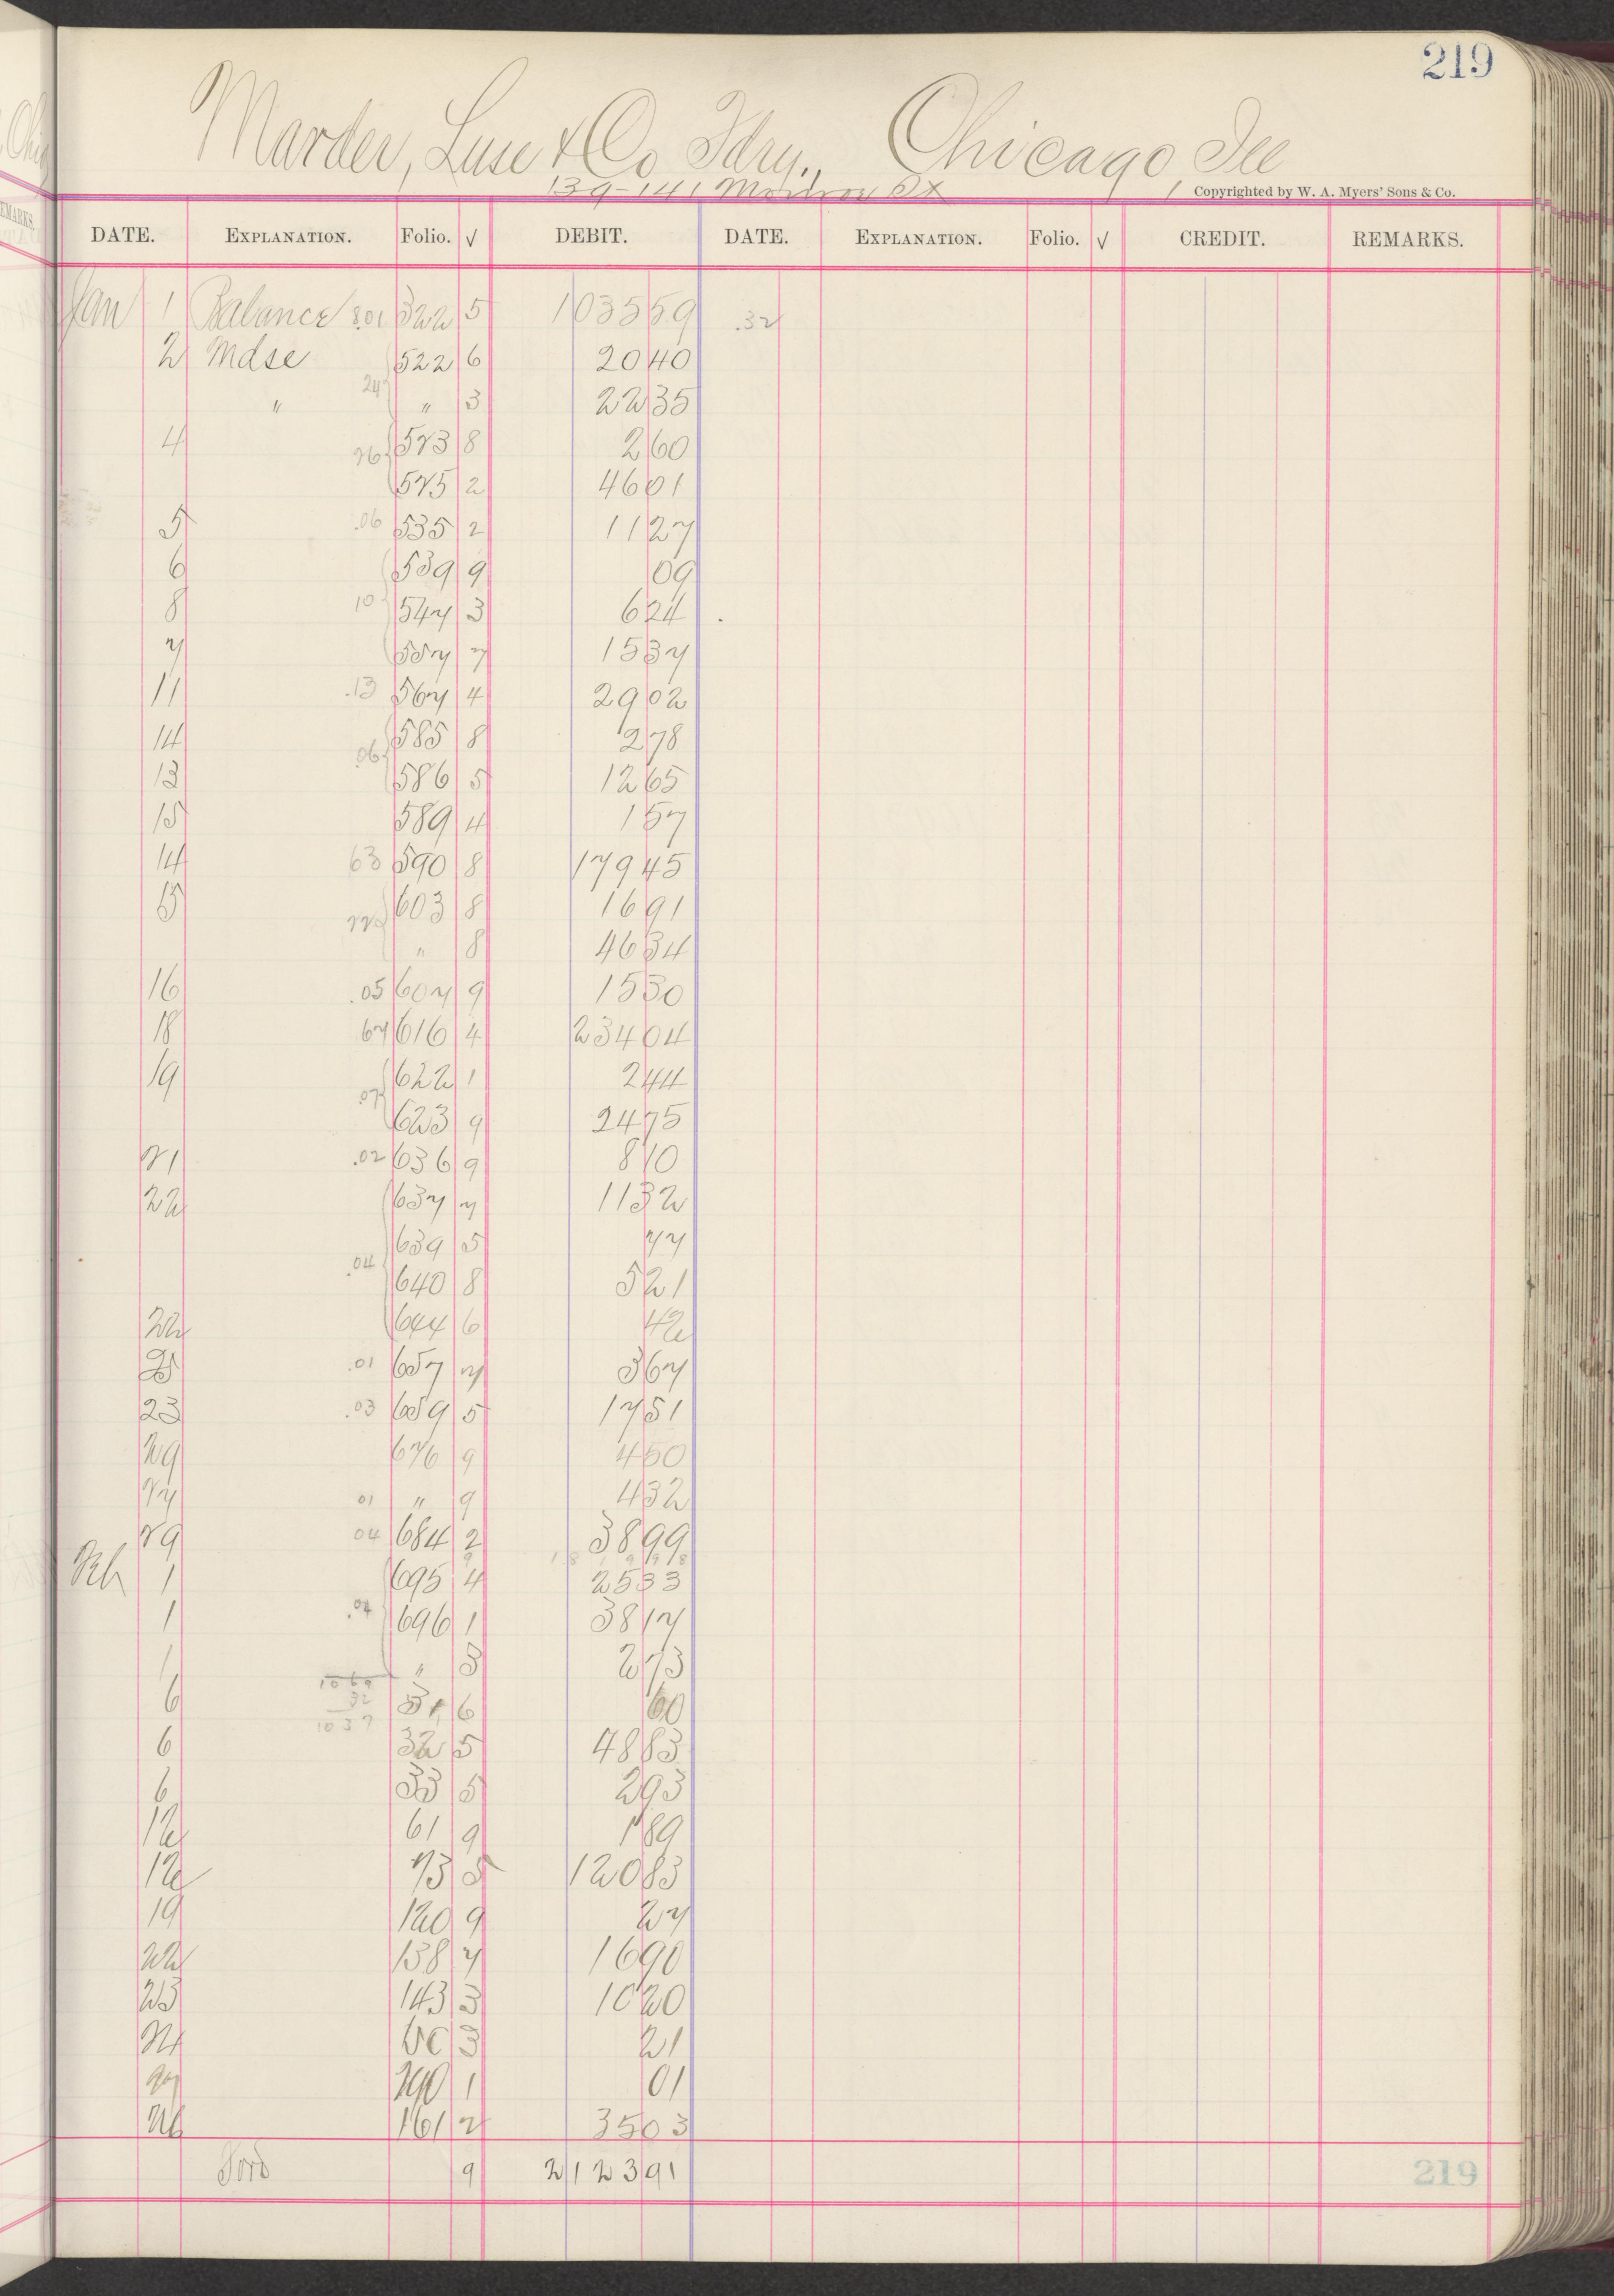 219
Marder, Luse & Co Fdry., Chicago Ill
139-141 Monroe St
Copyrighted by W. A. Myers' Sons & Co.
DATE. EXPLANATION. Folio. √ DEBIT. DATE. EXPLANATION. Folio. √ CREDIT. REMARKS.
Jan 1 Balance 322 5 1035 59 .32
2 Mdse 522 6 20 40
" 24 " 3 22 35
4 8 2 60
2 46 01
5 .06 535 2 11 27
6 539 9 09
8 10 547 3 6 24
7 557 7 15 37
11 .13 567 4 29 02
14 .06 585 8 2 78
13 586 5 12 65
15 589 4 1 57
14 63 590 8 179 45
15 603 8 16 91
" 8 46 34
16 .05 607 9 15 30
18 67 616 4 234 04
19 .07 622 1 2 44
623 9 24 75
21 .02 636 9 8 10
22 637 7 11 32
639 5 77
.04 640 8 5 21
22 644 6 42
25 .01 657 7 3 67
23 .03 659 5 17 51
29 676 9 4 50
27 01 " 9 4 32
29 04 684 2 38 99
Feb 1 695 4 25 33
1 696 1 38 17
1 " 3 2 73
6 6 60
6 32 5 48 83
6 33 5 2 93
12 61 9 1 89
12 73 5 120 83
19 120 9 27
22 138 7 16 90
23 143 3 10 20
3 21
1 01
26 161 2 35 03
Ford 9 2123 91
219